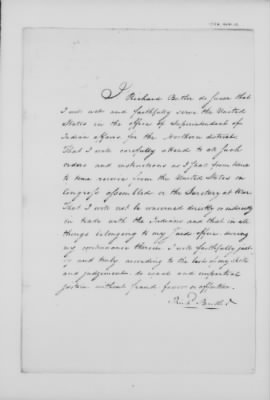 I Richard Butler do swear that
I will well and faithfully serve the United
States in the office of Superintendant of
Indian affairs for the Northern district.
That I will carefully attend to all such
orders and instructions as I shall from time
to time receive from the United States in
Congress assembled or the Secretary at War
That I will not be concerned directly or indirectly
in trade with the Indians and that in all
things belonging to my said office during
my continuance therein I will faithfully justly
and truly according to the best of my skill
and judgement do equal and impartial
justice without fraud favor or affection.
Richd Butler